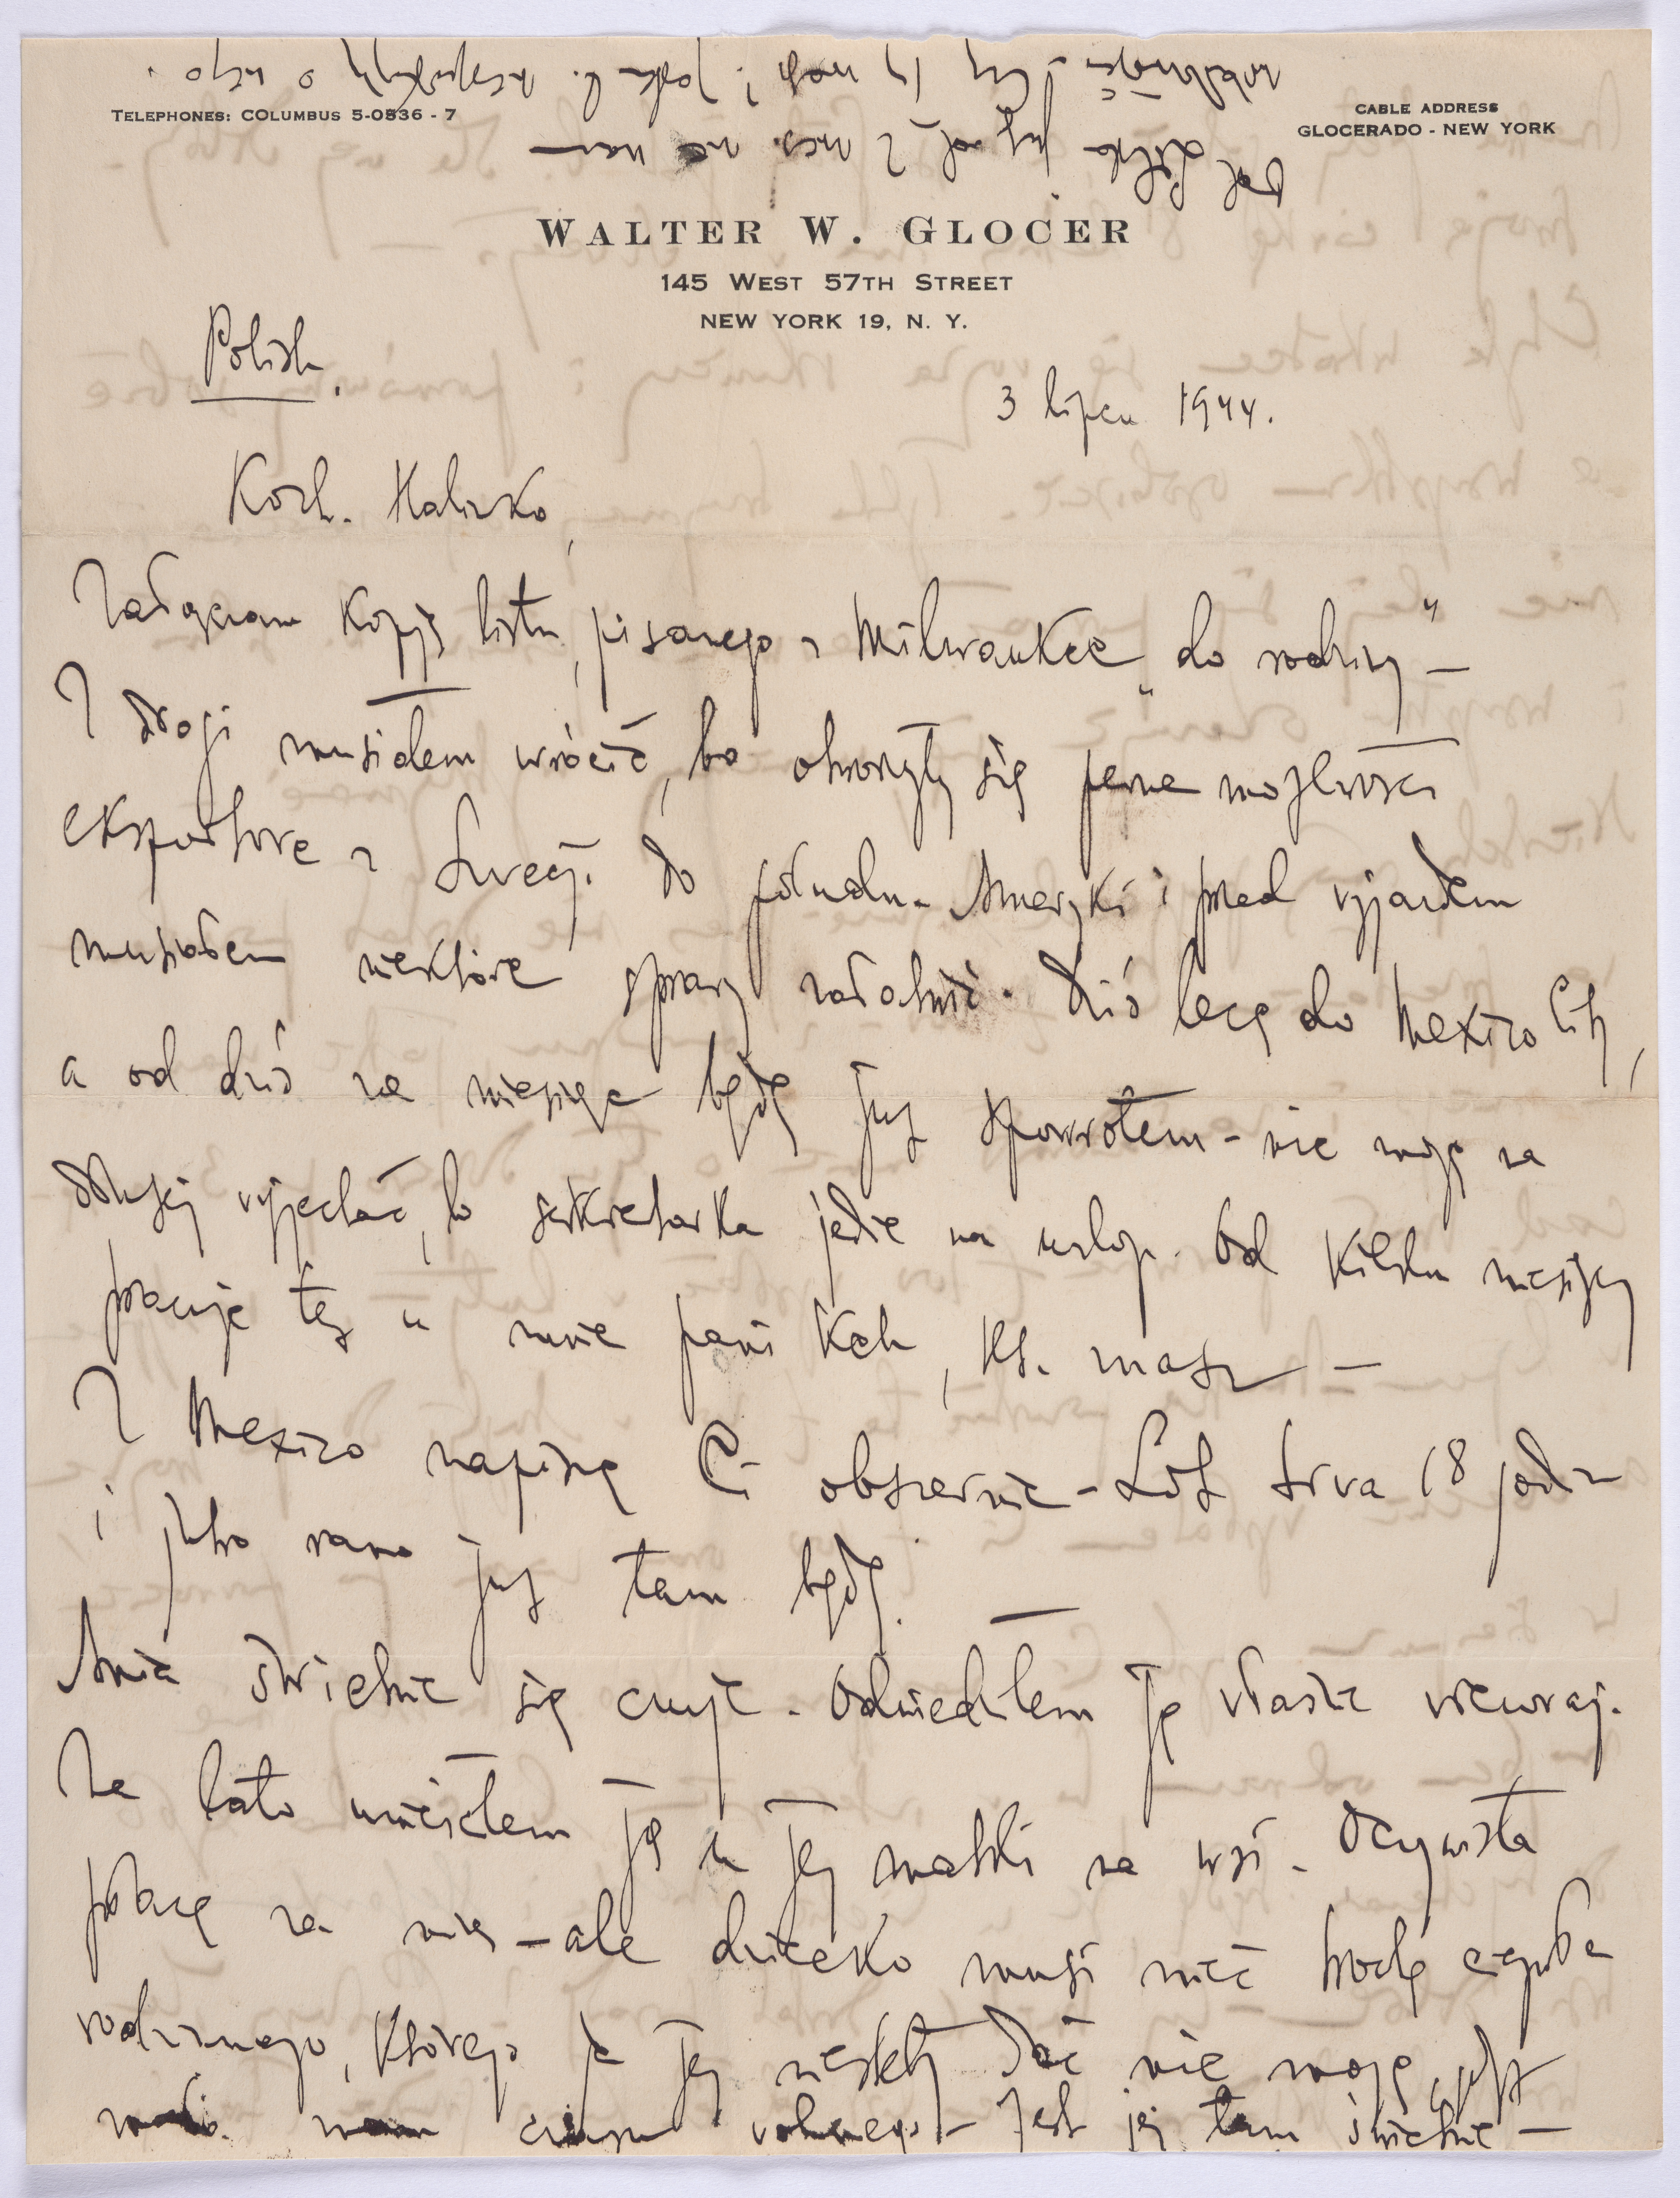 TELEPHONES: COLUMBUS 5-0836 - 7
CABLE ADDRESS
GLOCERADO - NEW YORK
WALTER W. GLOCER
145 WEST 57TH STREET
NEW YORK 19, N. Y.
Polish.
3 lipca 1944.
Koch. Halinko,
Załączam kopję listu, pisanego z Milwaukee „do rodziny" —
Z drogi musiałem wrócić, bo otworzyły się pewne możliwości
eksportowe z Szwecji do połudn. Ameryki i przed wyjazdem
musiałem niektóre sprawy załatwić. Dziś lecę do Mexico City,
a od dziś za miesiąc będę już spowrotem - nie mogę na
dłużej wyjechać, bo sekretarka jedzie na urlop. Od kilku miesięcy
pracuje też u mnie pani, kt. znasz —
Z Mexico napiszę Ci obszernie - Lot trwa 18 godzin
i jutro rano już tam będę. —
Ania świetnie się czuje. Odwiedziłem ją właśnie wczoraj.
Na lato umieściłem ją u jej matki na wsi. Oczywista
płacę za nią - ale dziecko musi mieć trochę ciepła
rodzinnego, którego ja jej niestety dać nie mogę, gdyż
mało mam czasu wolnego - Jest jej tam świetnie —
Od Lilka już od 2 mies. nie mam
wiadomości. Czy Ty masz? Jestem b. niespokojny o niego.